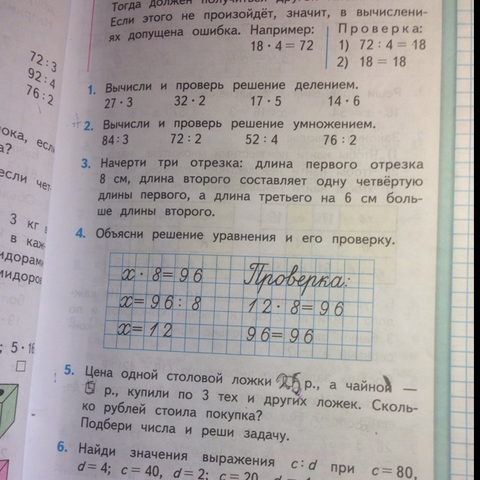 Если этого не произойдёт, значит, в вычислени-
ях допущена ошибка. Например:
18 · 4 = 72
Проверка:
1) 72 : 4 = 18
2) 18 = 18
72 : 3
92 : 4
76 : 2
1. Вычисли и проверь решение делением.
27 · 3 32 · 2 17 · 5 14 · 6
2. Вычисли и проверь решение умножением.
84 : 3 72 : 2 52 : 4 76 : 2
3. Начерти три отрезка: длина первого отрезка
8 см, длина второго составляет одну четвёртую
длины первого, а длина третьего на 6 см боль-
ше длины второго.
4. Объясни решение уравнения и его проверку.
x · 8 = 96 Проверка:
x = 96 : 8 12 · 8 = 96
x = 12 96 = 96
5. Цена одной столовой ложки р., а чайной —
р., купили по 3 тех и других ложек. Сколь-
ко рублей стоила покупка?
Подбери числа и реши задачу.
6. Найди значения выражения c : d при c = 80,
d = 4; c = 40, d = 2; c = 20,